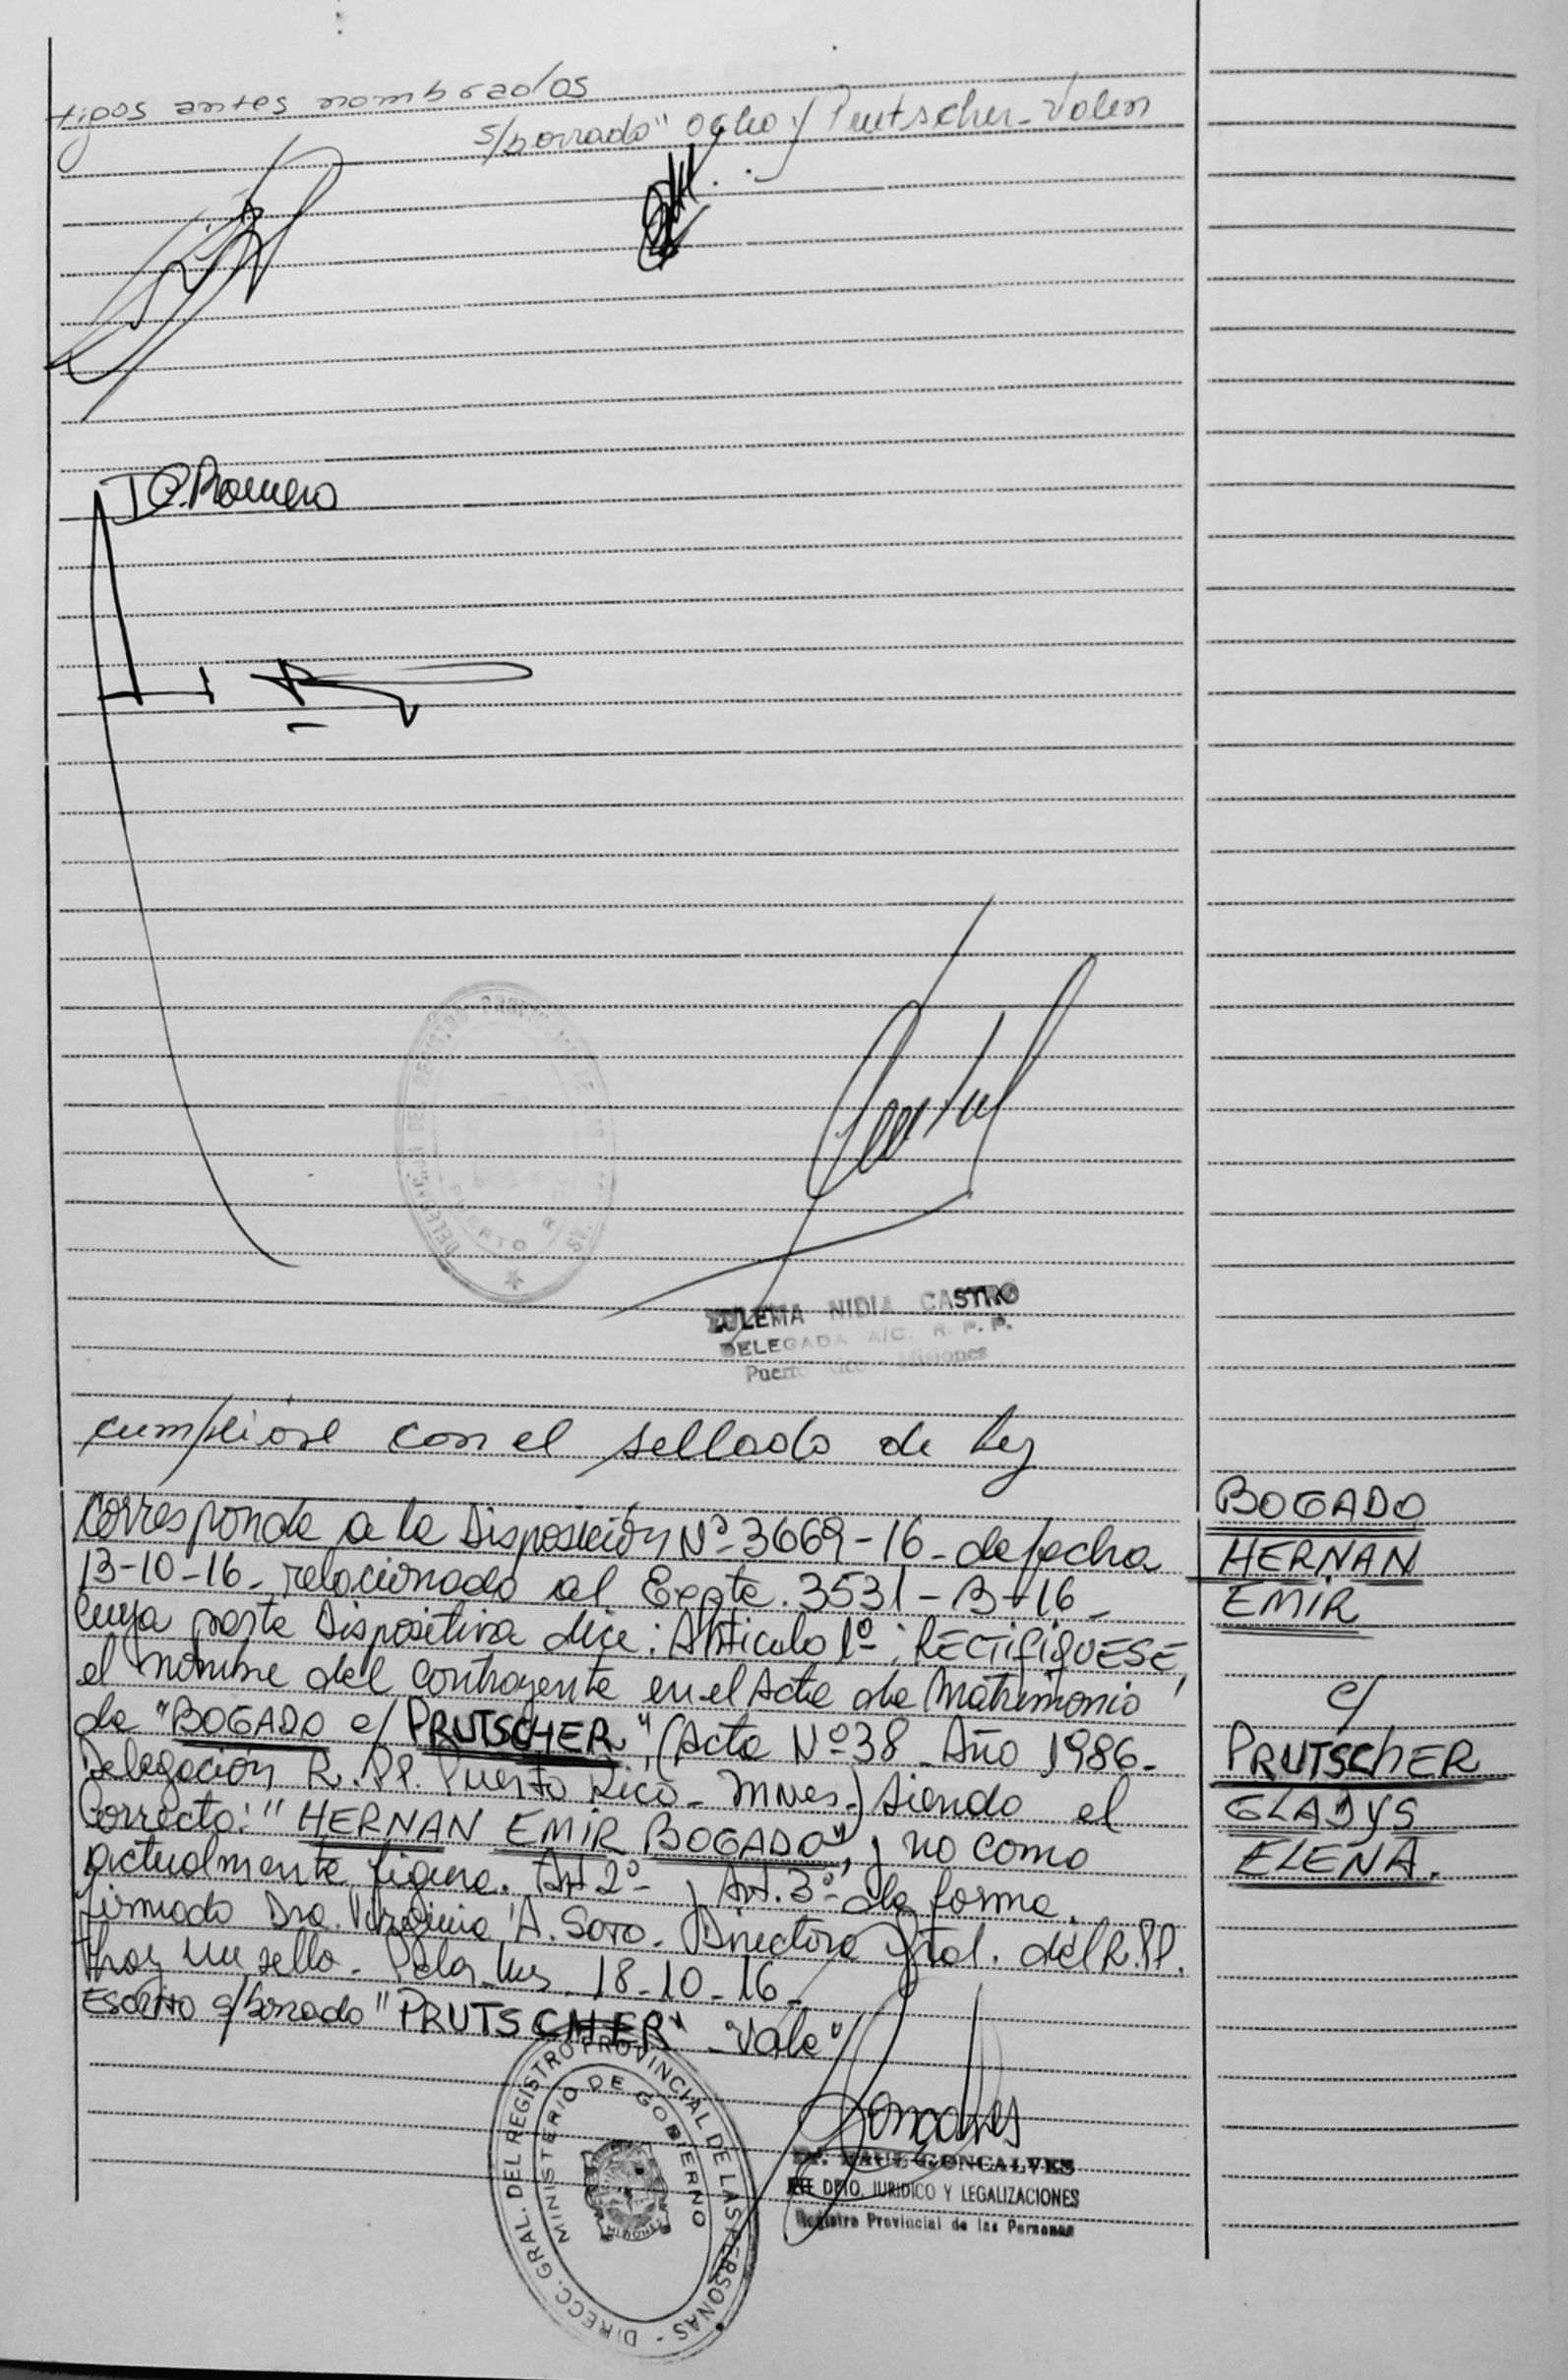 tigos antes nombrados
s/borrado "ocho y Prutscher - Valen
I C. Romero
DELEGACION DEL REGISTRO PROVINCIAL DE
PUERTO RICO
ZULEMA NIDIA CASTRO
DELEGADA A/C. R. P. P.
Puerto Rico - Misiones
cumpliose con el sellado de ley
Corresponde a la Disposición Nº 3669-16 - de fecha
13-10-16 - relacionado al Expte. 3531-B-16 -
Cuya parte Dispositiva dice: Articulo 1º: RECTIFIQUESE,
el nombre del Contrayente en el Acta de Matrimonio
de "BOGADO c/ PRUTSCHER", (Acta Nº 38 - Año 1986 -
Delegación R. PP. Puerto Rico - Mnes.) siendo el
Correcto: "HERNAN EMIR BOGADO", y no como
actualmente figura. Art 2º , Art. 3º de forma.
firmado Dra. Virginia A. Soto. Directora Gral. del R. PP.
Hay un sello - Pdas. Mnes. 18-10-16 -
ESCRITO s/borrado "PRUTSCHER" - "Vale"
BOGADO
HERNAN
EMIR
c/
PRUTSCHER
GLADYS
ELENA.
DIRECC. GRAL. DEL REGISTRO PROVINCIAL DE LAS PERSONAS
MINISTERIO DE GOBIERNO
MISIONES
Goncalves
Dr. RAUL GONCALVES
JEFE DPTO. JURIDICO Y LEGALIZACIONES
Registro Provincial de las Personas